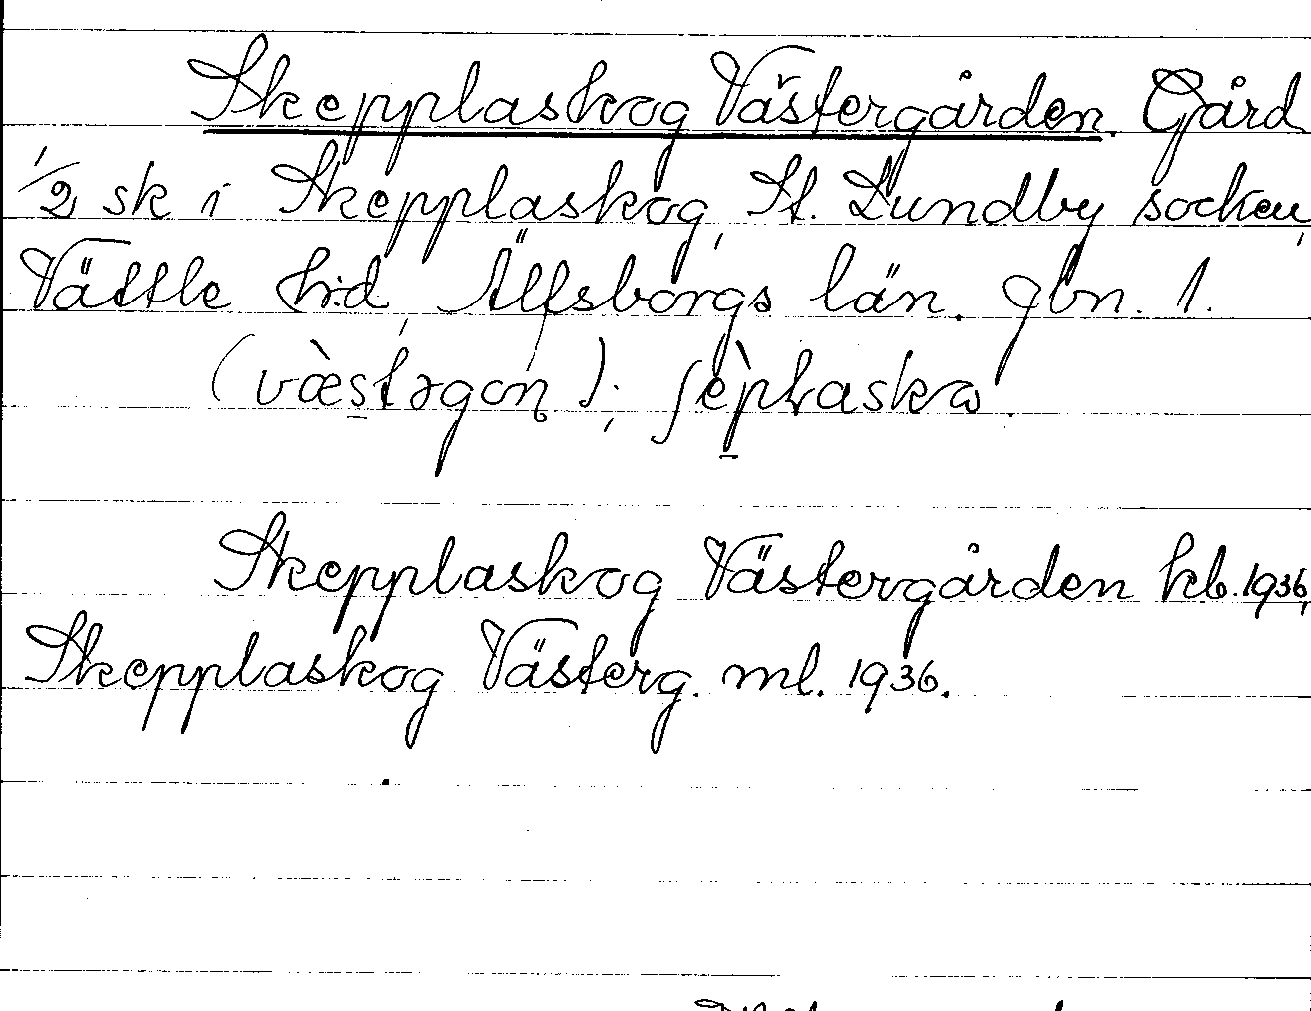 Skepplaskog Västergården. Gård
1/2 sk i Skepplaskog, St. Lundby socken,
Vättle hd, Älfsborgs län. gbn. 1.
(væ̀stərgɔn); ʃèpɫaskɷ.
Skepplaskog Västergården kb. 1936,
Skepplaskog Västerg. ml. 1936.